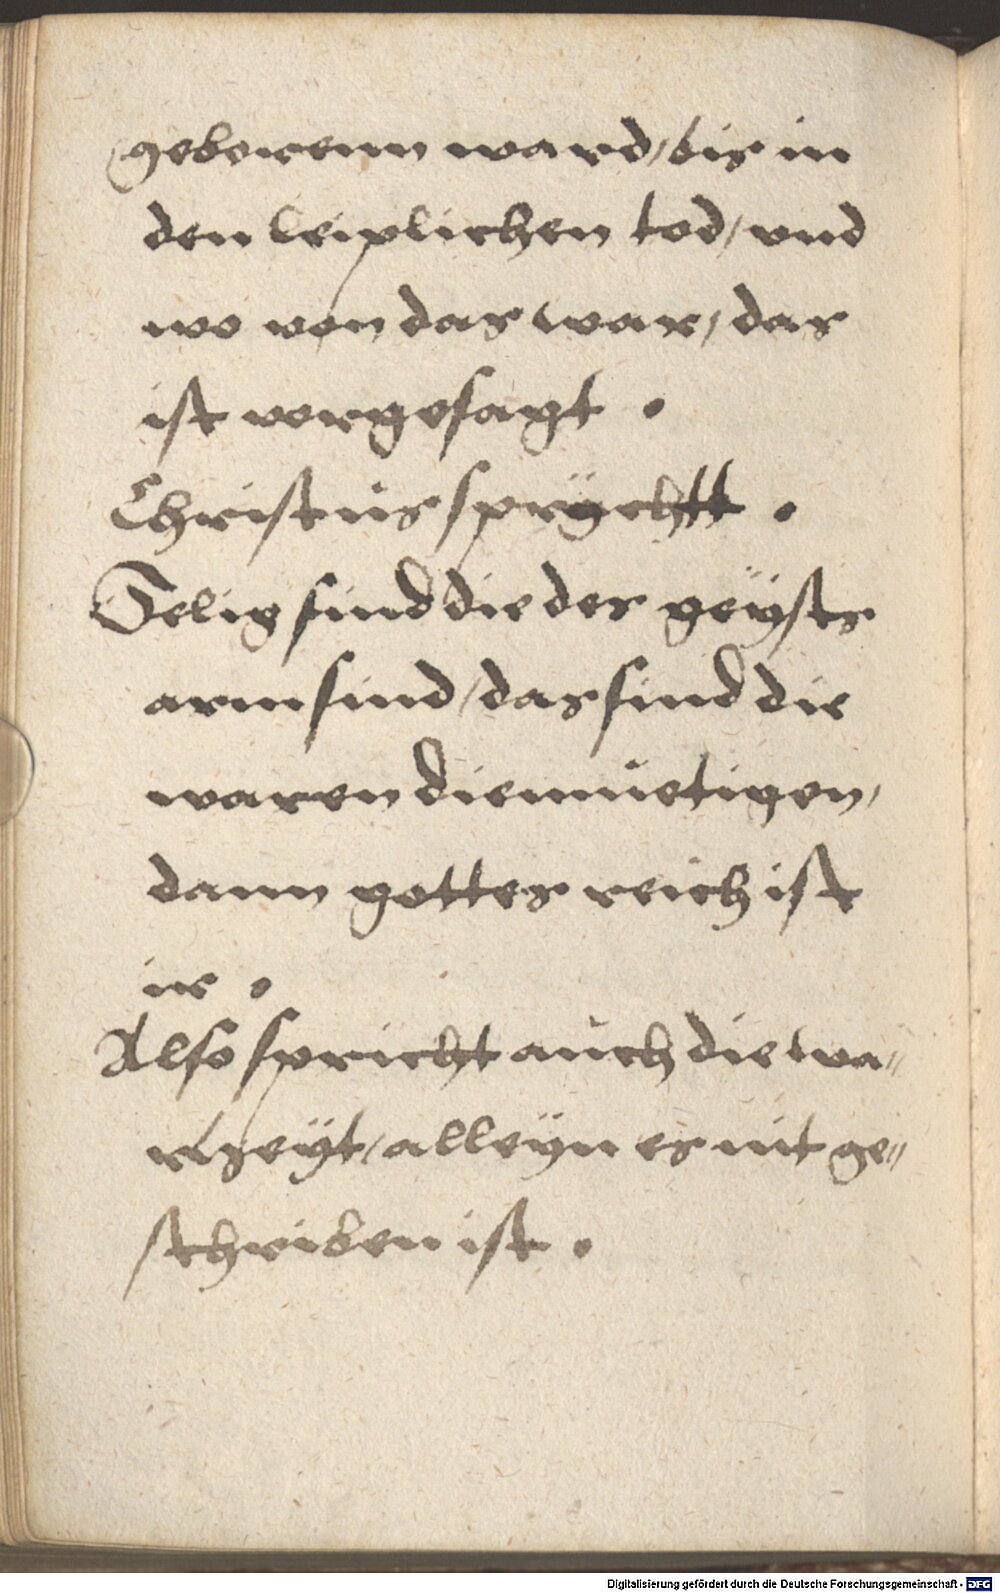 geborenn ward/ bis in
den leiplichen tod/ vnd
wo von das war/ das
ist vorgesagt .
Christus sprychtt .
Selig sind die des geÿsts
arm sind/ das sind die
waren diemůetigen,
dann gottes reich ist
ir .
Also spricht auch die wa⸗
rheÿt/ alleÿn es nit ge⸗
schriben ist .
Digitalisierung gefördert durch die Deutsche Forschungsgemeinschaft - DFG